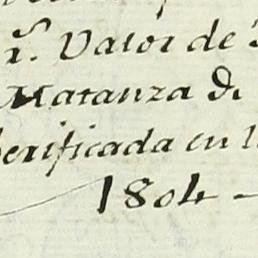 r. Valor de
Matanza de
verificada en l
1804